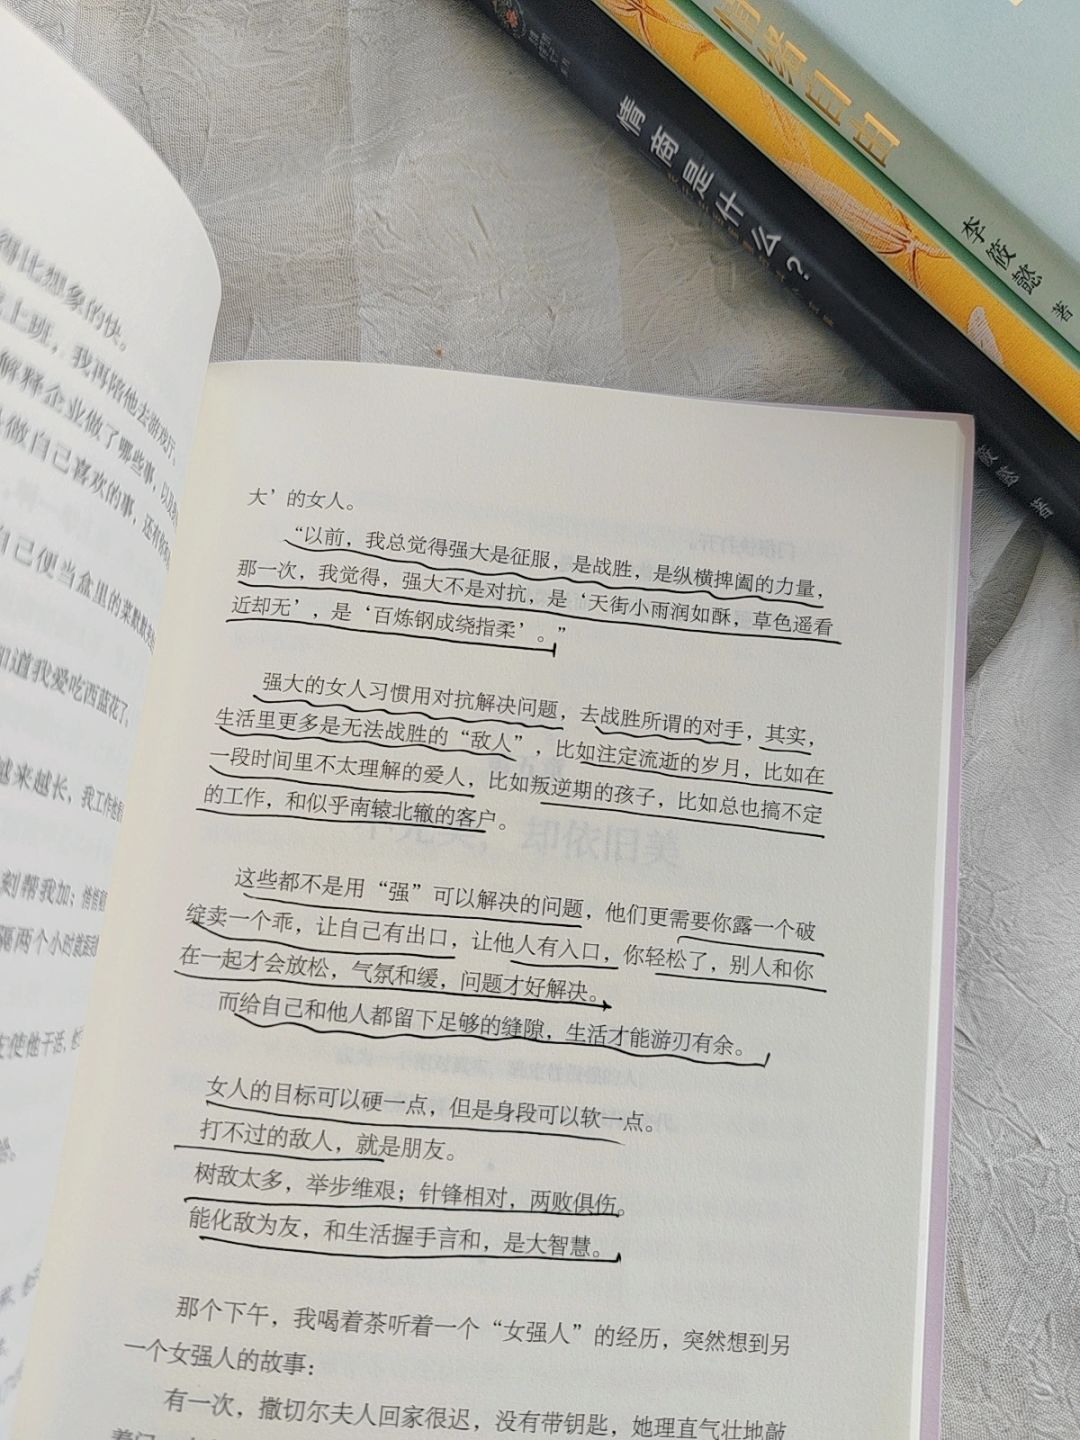 情绪自由
李筱懿 著
情商是什么?
筱懿 著
得比想象的快。
上班，我再陪他去游戏厅。
解释企业做了哪些事，以及
做自己喜欢的事，还有
自己便当盒里的菜默默
知道我爱吃西蓝花了，
越来越长，我工作
刻帮我加；悄悄
隔两个小时就
使他干活，
大’的女人。
“以前，我总觉得强大是征服，是战胜，是纵横捭阖的力量，
那一次，我觉得，强大不是对抗，是‘天街小雨润如酥，草色遥看
近却无’，是‘百炼钢成绕指柔’。”
强大的女人习惯用对抗解决问题，去战胜所谓的对手，其实，
生活里更多是无法战胜的“敌人”，比如注定流逝的岁月，比如在
一段时间里不太理解的爱人，比如叛逆期的孩子，比如总也搞不定
的工作，和似乎南辕北辙的客户。
这些都不是用“强”可以解决的问题，他们更需要你露一个破
绽卖一个乖，让自己有出口，让他人有入口，你轻松了，别人和你
在一起才会放松，气氛和缓，问题才好解决。
而给自己和他人都留下足够的缝隙，生活才能游刃有余。
女人的目标可以硬一点，但是身段可以软一点。
打不过的敌人，就是朋友。
树敌太多，举步维艰；针锋相对，两败俱伤。
能化敌为友，和生活握手言和，是大智慧。
那个下午，我喝着茶听着一个“女强人”的经历，突然想到另
一个女强人的故事：
有一次，撒切尔夫人回家很迟，没有带钥匙，她理直气壮地敲
着门